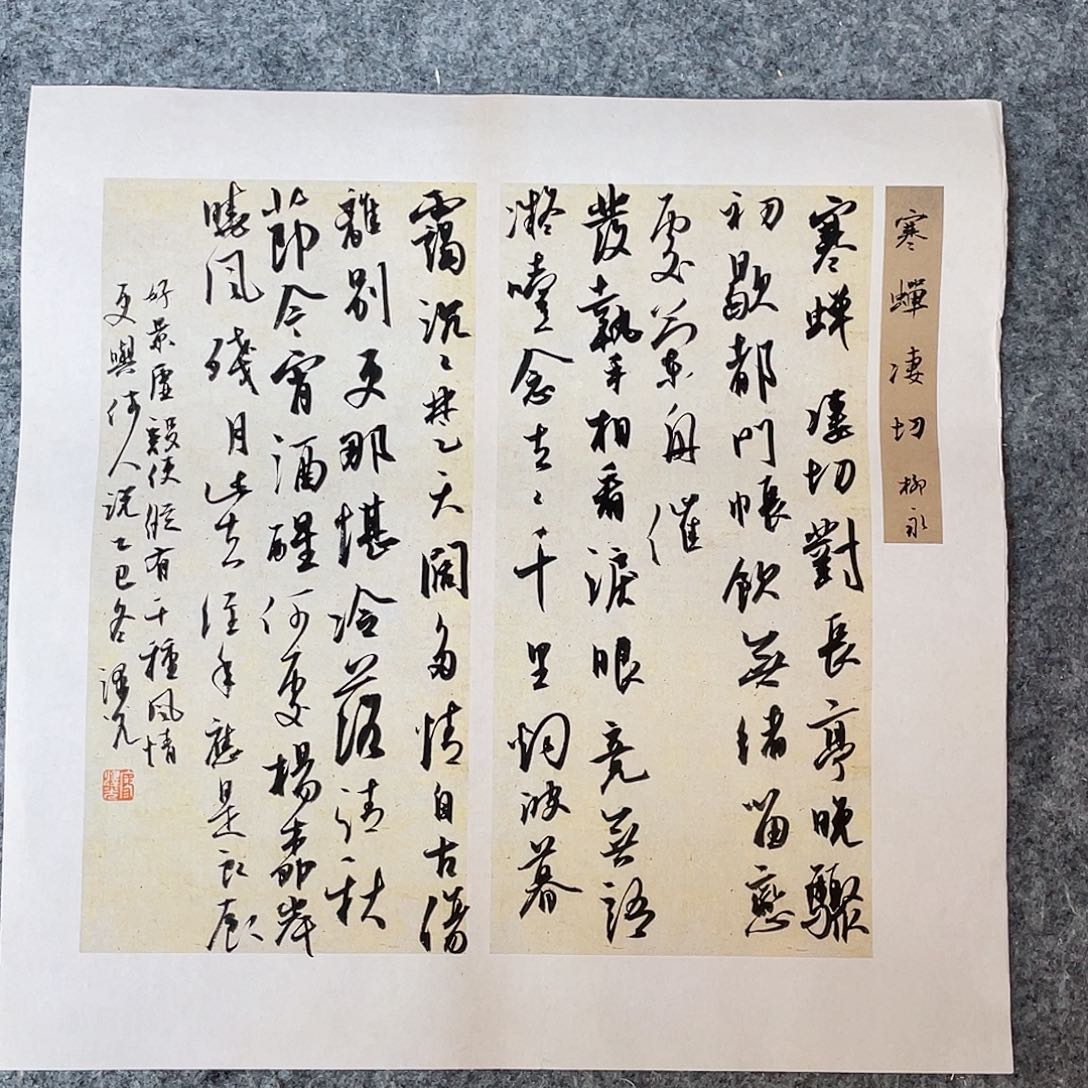 寒蟬凄切 柳永
寒蟬凄切對長亭晚驟
初歇都門帳飲無緒留戀
處蘭舟催
發執手相看淚眼竟無語
凝噎念去々千里烟波暮
靄沉々楚天闊多情自古傷
離別更那堪冷落清秋
節今宵酒醒何處楊柳岸
曉風殘月此去經年應是良辰
好景虛設便縱有千種風情
更與何人説乙巳冬